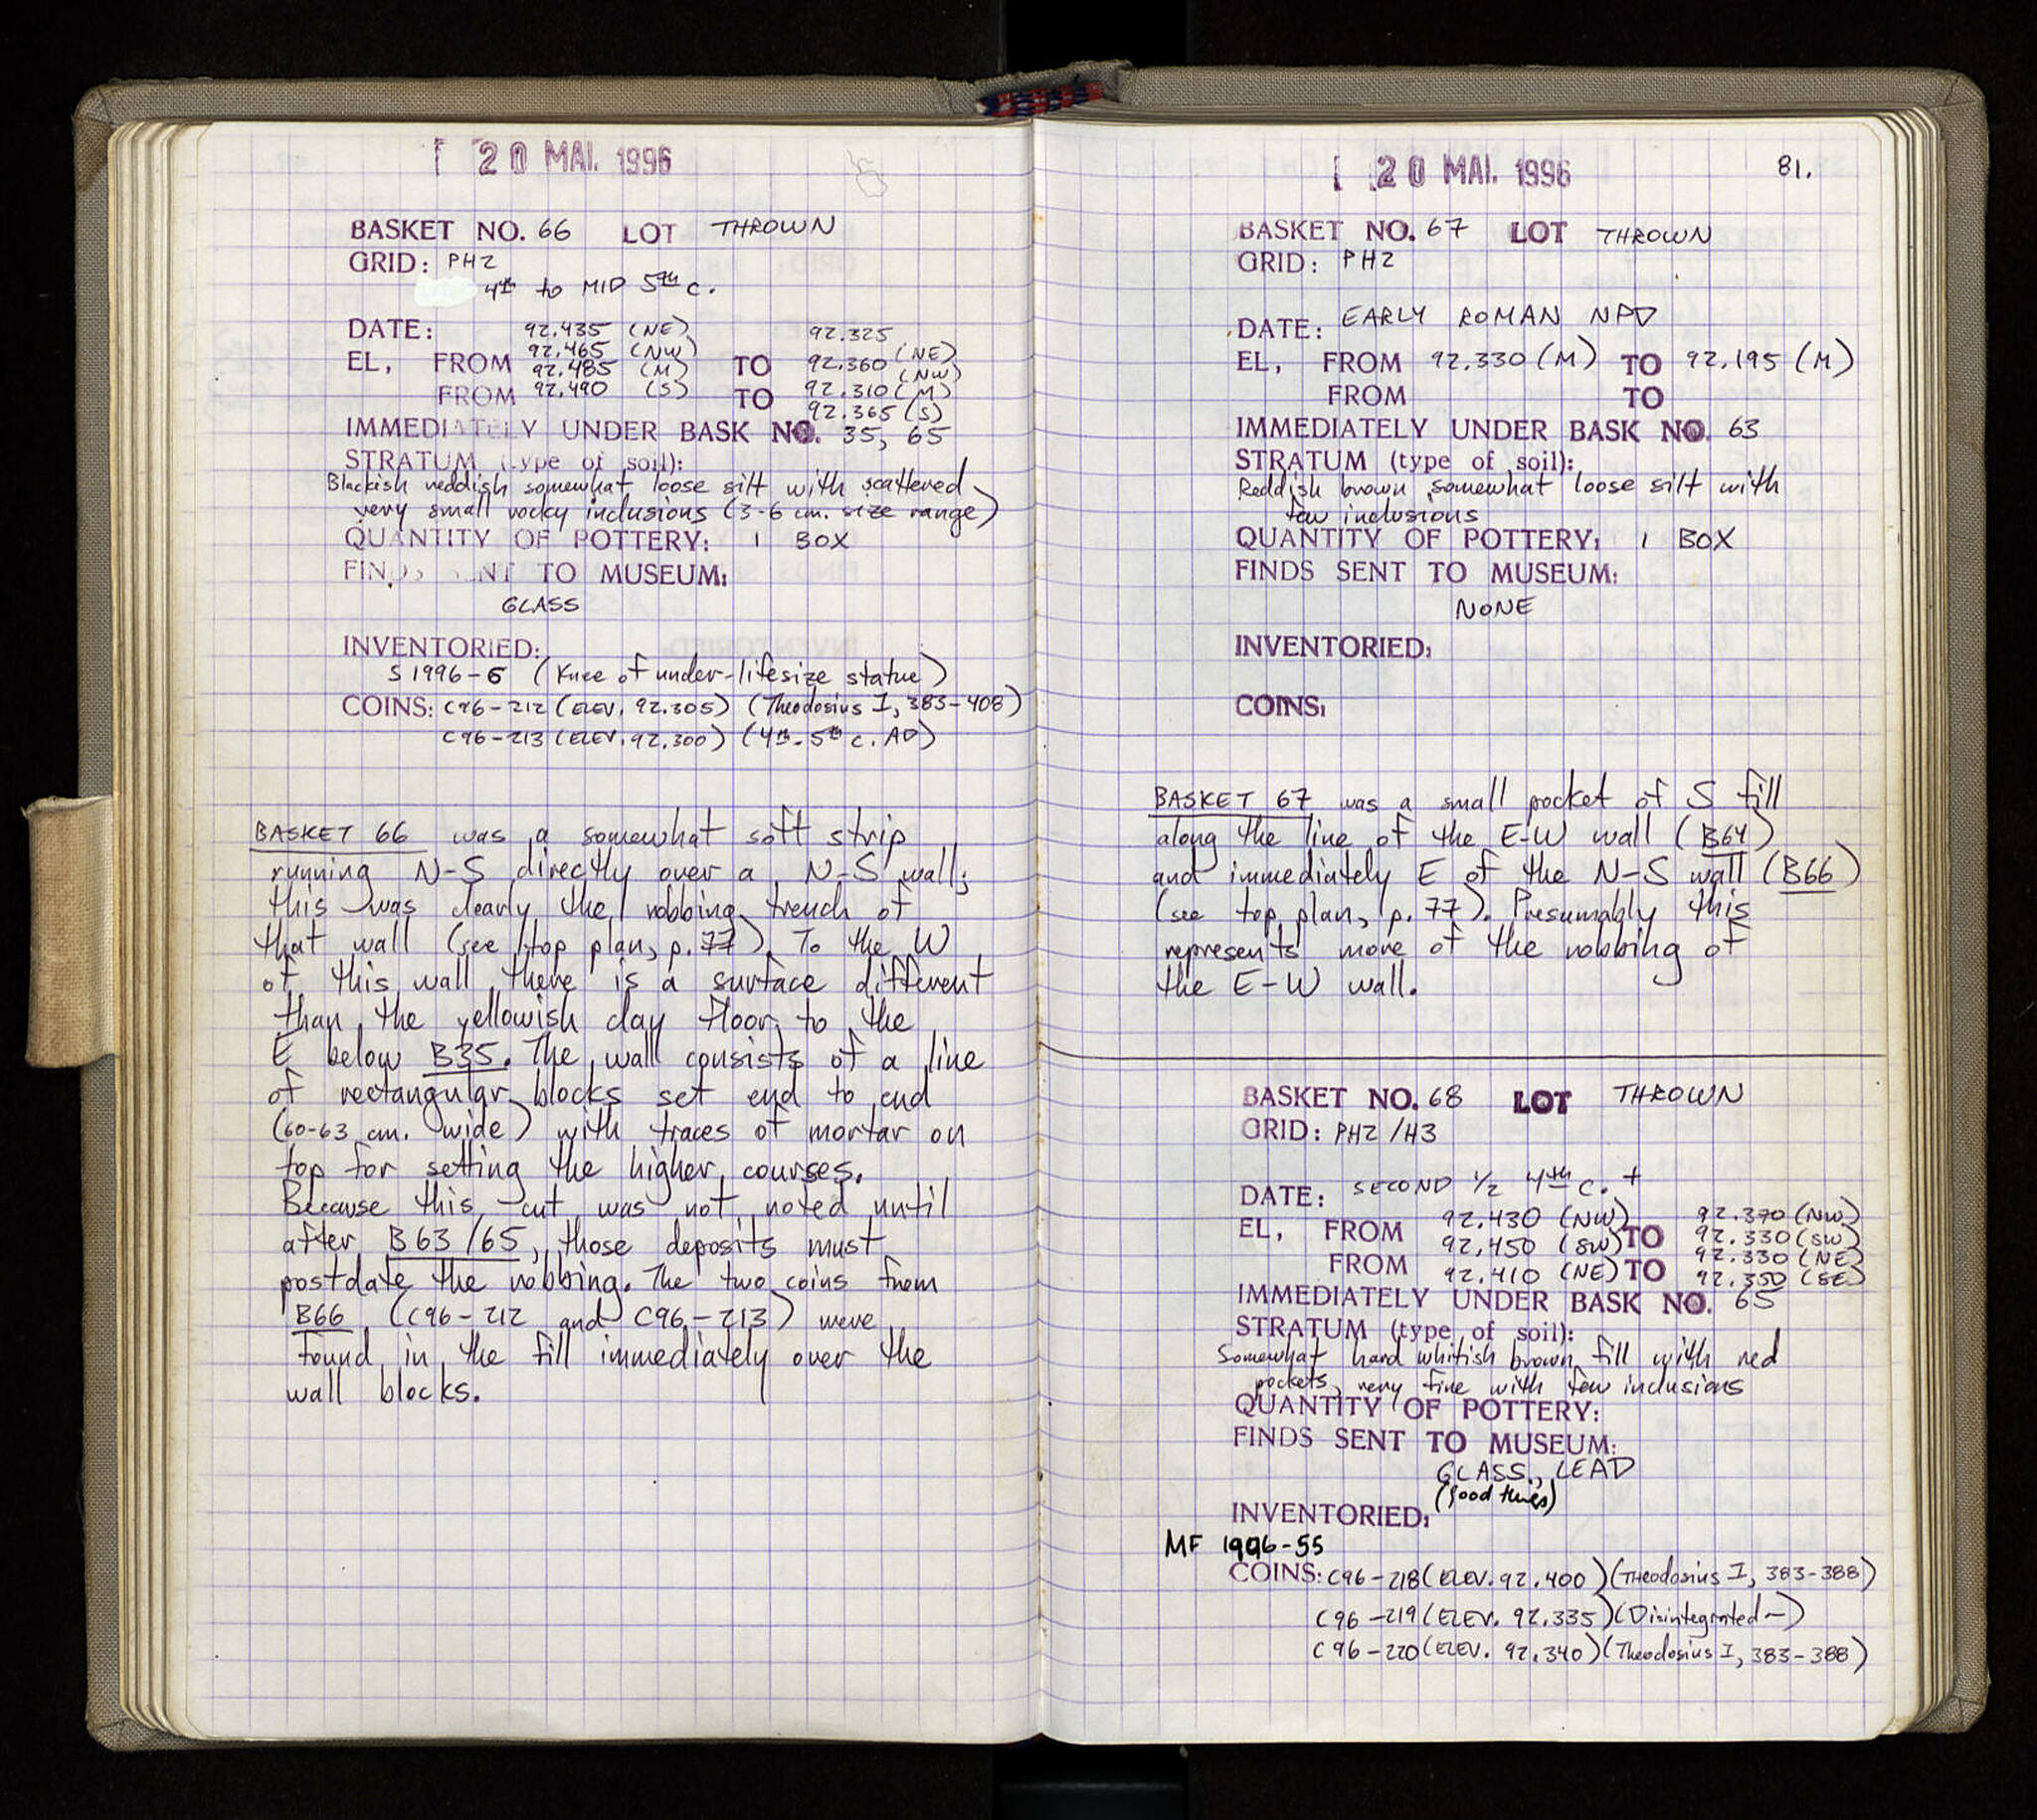 20 MAI. 1996
BASKET NO. 66 LOT THROWN
GRID: PHZ
4th to MID 5th c.
DATE:
EL, FROM 92.435 (NE) TO 92.325 (NE)
92.465 (NW) 92.360 (NW)
FROM 92.485 (M) TO 92.310 (M)
92.490 (S) 92.365 (S)
IMMEDIATELY UNDER BASK NO. 35, 65
STRATUM (type of soil):
Blackish reddish somewhat loose silt with scattered
very small rocky inclusions (3-6 cm. size range)
QUANTITY OF POTTERY: 1 BOX
FINDS SENT TO MUSEUM:
GLASS
INVENTORIED:
S 1996-6 (Knee of under-lifesize statue)
COINS: C96-212 (ELEV. 92.305) (Theodosius I, 383-408)
C96-213 (ELEV. 92.300) (4th-5th c. AD)
BASKET 66 was a somewhat soft strip
running N-S directly over a N-S wall;
this was clearly the robbing trench of
that wall (see top plan, p. 77). To the W
of this wall there is a surface different
than the yellowish clay floor to the
E below B35. The wall consists of a line
of rectangular blocks set end to end
(60-63 cm. wide) with traces of mortar on
top for setting the higher courses.
Because this cut was not noted until
after B63/65, those deposits must
postdate the robbing. The two coins from
B66 (C96-212 and C96-213) were
found in the fill immediately over the
wall blocks.
20 MAI. 1996
81.
BASKET NO. 67 LOT THROWN
GRID: PHZ
DATE: EARLY ROMAN NPD
EL, FROM 92.330 (M) TO 92.195 (M)
FROM TO
IMMEDIATELY UNDER BASK NO. 63
STRATUM (type of soil):
Reddish brown somewhat loose silt with
few inclusions
QUANTITY OF POTTERY: 1 BOX
FINDS SENT TO MUSEUM:
NONE
INVENTORIED:
COINS:
BASKET 67 was a small pocket of S fill
along the line of the E-W wall (B64)
and immediately E of the N-S wall (B66)
(see top plan, p. 77). Presumably this
represents more of the robbing of
the E-W wall.
BASKET NO. 68 LOT THROWN
GRID: PHZ/H3
DATE: SECOND 1/2 4th c. +
EL, FROM 92.430 (NW) TO 92.370 (NW)
92.450 (SW) 92.330 (SW)
FROM 92.410 (NE) TO 92.330 (NE)
92.350 (SE)
IMMEDIATELY UNDER BASK NO. 65
STRATUM (type of soil):
Somewhat hard whitish brown fill with red
pockets, very fine with few inclusions
QUANTITY OF POTTERY:
FINDS SENT TO MUSEUM:
GLASS, LEAD
(good things)
INVENTORIED:
MF 1996-55
COINS: C96-218 (ELEV. 92.400) (Theodosius I, 383-388)
C96-219 (ELEV. 92.335) (Disintegrated-)
C96-220 (ELEV. 92.340) (Theodosius I, 383-388)